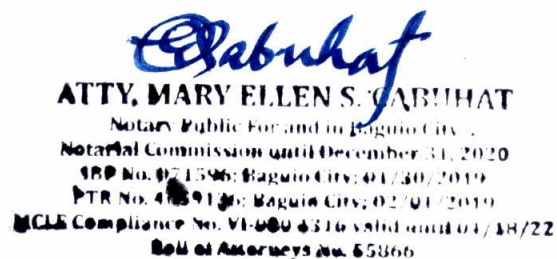 Cabuhat
ATTY. MARY ELLEN S. CABUHAT
Notary Public For and in Baguio City
Notarial Commission until December 31, 2020
IBP No. 071596; Baguio City; 01/30/2019
PTR No. Baguio City; 02/01/2019
MCLE Compliance No. valid until 04/18/22
Roll of Attorneys No. 65866